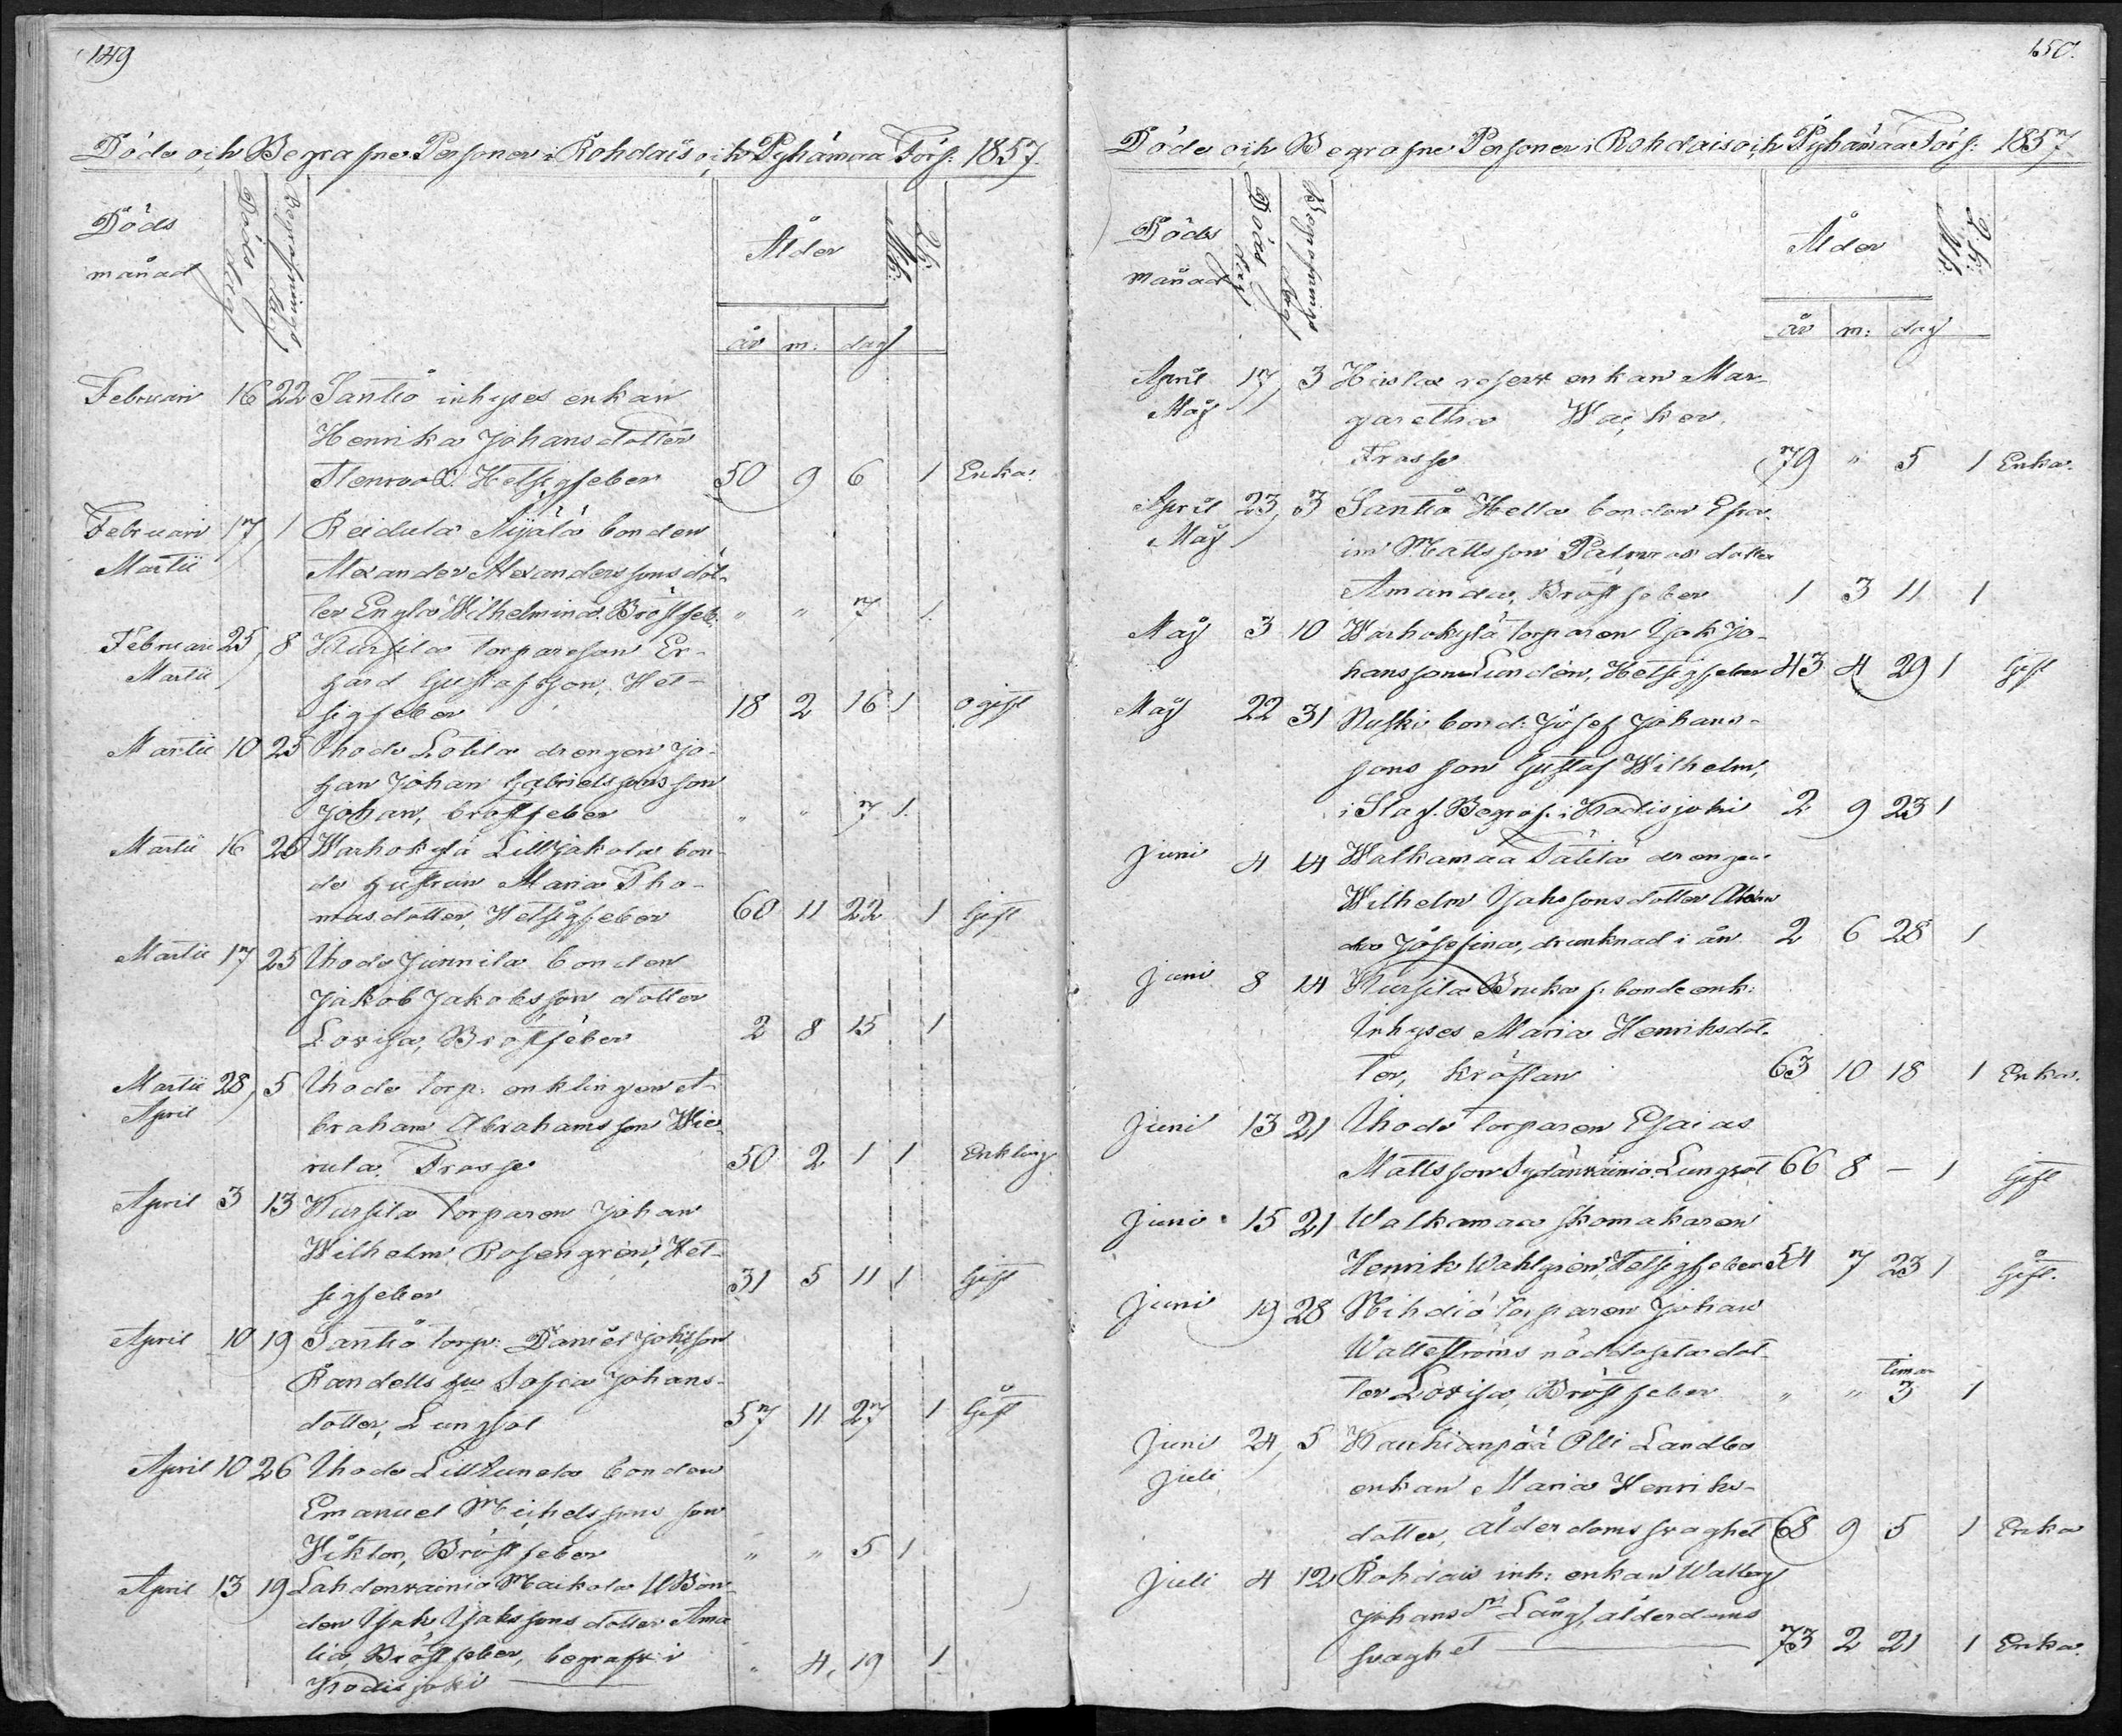 149
Döde och Begrafne Personer i Rohdais och Pyhämaa Förs: 1857.
Döds månad
Döds dag
Begrafnings dag
Ålder
Mk:
Qk:
år m: dag
Februari 16 22 Santio inhyses enkan
Henrika Johansdotter
Hetsigfeber 50 9 6 1 Enka.
Februari 17 1 Reidula Nijälä bonden
Martii Alexander Alexanderssons dot-
ter Engla Wilhelmina. Bröstfeb. " " 7 1.
Februari 25 8 Kursila torpareson Er-
Martii hard Gustafsson, Het-
sigfeber 18 2 16 1 ogift
Martii 10 25 Uhode Lotila drengen Jo-
han Johan Gabrielssons son
Johan, bröstfeber " " 7 1.
Martii 16 26 Warhokylä Lilljakola bon-
de hustrun Maria Tho-
masdotter, Hetsigfeber 60 11 22 1 Gift
Martii 17 25 Uhode Junnila bonden
Jakob Jakobsson dotter
Lovisa, Bröstfeber 2 8 15 1
Martii 28 5 Uhode torp: enklingen A-
April braham Abrahamsson Wie-
rula. Frossa 50 2 1 1 Enkling
April 3 13 Kursila torparen Johan
Wilhelm Rosengren, Het-
sigfeber 31 5 11 1 Gift
April 10 19 Santio torp: Daniel Johsson
Randells hu Sofia Johans-
dotter, Lungsot 57 11 27 1 Gift
April 10 26 Uhode Lill bonden
Emanuel Michelssons son
Wiktor, Bröstfeber " " 5 1
April 13 19 Lahdenvainio Maikola Bon-
den Isak Isakssons dotter Ama
lia, Bröstfeber, begrafv: i " 4 19 1
Kodisjoki
150.
Döde och Begrafne Personer i Rohdais och Pyhämaa Förs: 1857
Döds månad
Döds dag
Begrafnings dag
Ålder
Mk:
Qk:
år m: dag
April 17 3 enkan Mar-
Maj garetha
Frossa 79 " 5 1 Enka.
April 23 3 Santio Hella bonden Efra-
Maj im Mattsson Palmros dotter
Amanda, Bröstfeber 1 3 11 1
Maj 3 10 Warhokylä torparen Isak Jo-
hansson Lunden, Hetsigfeber 43 4 29 1 Gift
Maj 22 31 Ruski bond: Josef Johans-
sons son Gustaf Wilhelm,
i Slag. Begraf. i Kodisjoki 2 9 23 1
Juni 4 14 Walkamaa Tätilä drengen
Wilhelm Isakssons dotter
Josefina, drunknad i ån 2 6 28 1
Juni 8 14 Kursila Bruka f: bonde enk:
Inhyses Maria Henriksdot-
ter, kräftan 63 10 18 1 Enka.
Juni 13 21 Uhode torparen Esaias
Mattsson Sydänvainio. Lungsot 66 8 — 1 Gift
Juni 15 21 Walkamaa skomakaren
Henrik Wahlgren, Hetsigfeber 54 7 23 1 Gift.
Juni 19 28 Nihdiö torparen Johan
Wallströms nöddöpta dot-
ter Lovisa, Bröstfeber " " 3 timar 1
Juni 24 5 Kauhianpää Olli Landbo
Juli enkan Maria Henriks-
dotter, ålderdomssvaghet 68 9 5 1 Enka
Juli 4 12 Rohdais inh: enkan Walborg
Johansdr Lång, ålderdoms
svaghet 73 2 21 1 Enka.